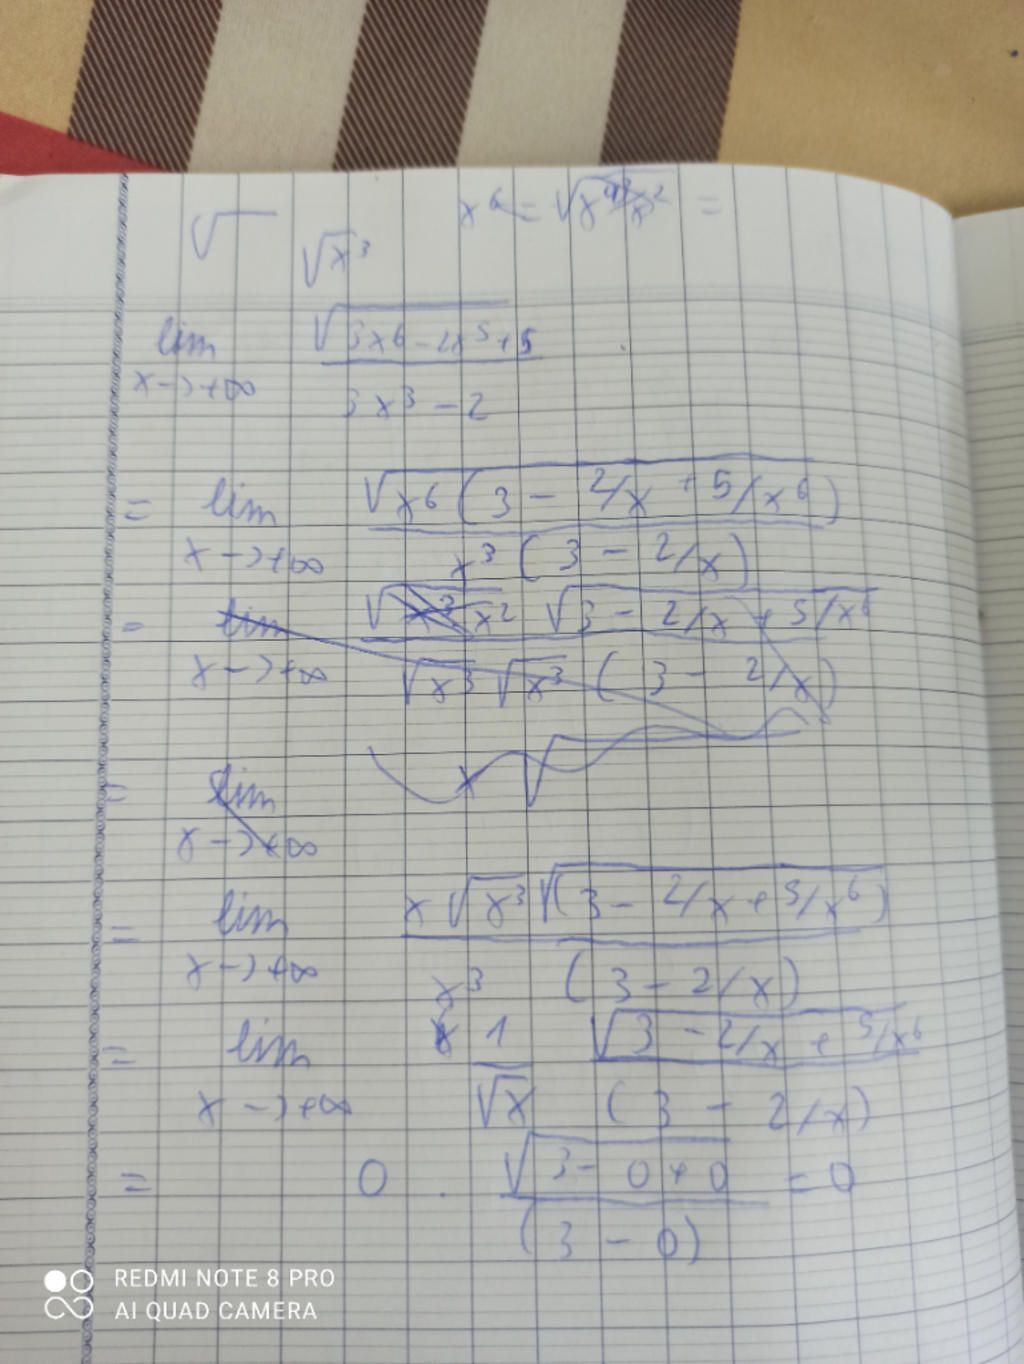 √
x⁶ = =
√x³
lim √(3x⁶ - 2x⁵ + 5)
x -> +∞ 3x³ - 2
= lim √(x⁶ (3 - 2/x + 5/x⁶))
x -> +∞ x³ (3 - 2/x)
= lim √(x³ x²) √(3 - 2/x + 5/x⁶)
x -> +∞ √x³ √x³ (3 - 2/x)
= lim x √
x -> +∞
= lim x √x³ √((3 - 2/x + 5/x⁶))
x -> +∞ x³ (3 - 2/x)
= lim 1 √(3 - 2/x + 5/x⁶)
x -> +∞ √x (3 - 2/x)
= 0 . √(3 - 0 + 0) = 0
(3 - 0)
REDMI NOTE 8 PRO
AI QUAD CAMERA